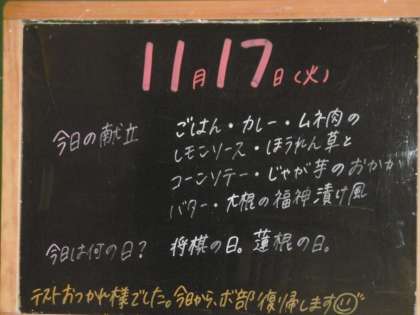 11月17日(火)
今日の献立 ごはん・カレー・ムネ肉の
レモンソース・ほうれん草と
コーンソテー・じゃが芋のおかか
バター・大根の福神漬け風
今日は何の日? 将棋の日。蓮根の日。
テストおつかれ様でした。今日から、ボ部復帰します